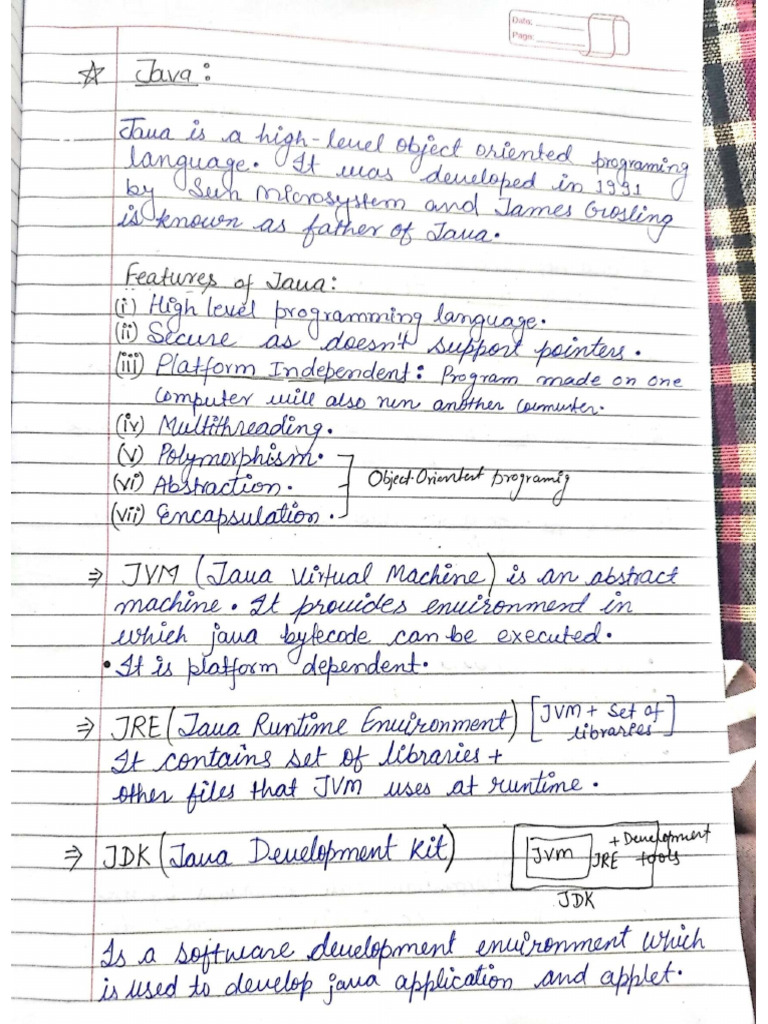 Date:
Page:
☆ Java :
Java is a high-level object oriented programing
language. It was developed in 1991
by Sun Microsystem and James Grosling
is known as father of Java.
Features of Java:
(i) High level programming language.
(ii) Secure as doesn't support pointers.
(iii) Platform Independent: Program made on one
computer will also run another computer.
(iv) Multithreading.
(v) Polymorphism.
(vi) Abstraction. Object-Orientert programig
(vii) Encapsulation.
⇒ JVM (Java Virtual Machine) is an abstract
machine. It provides environment in
which java bytecode can be executed.
• It is platform dependent.
⇒ JRE (Java Runtime Environment) [JVM + Set of
libraries]
It contains set of libraries +
other files that JVM uses at runtime.
⇒ JDK (Java Development Kit)
JVM JRE + Development tools
JDK
Is a software development environment which
is used to develop java application and applet.